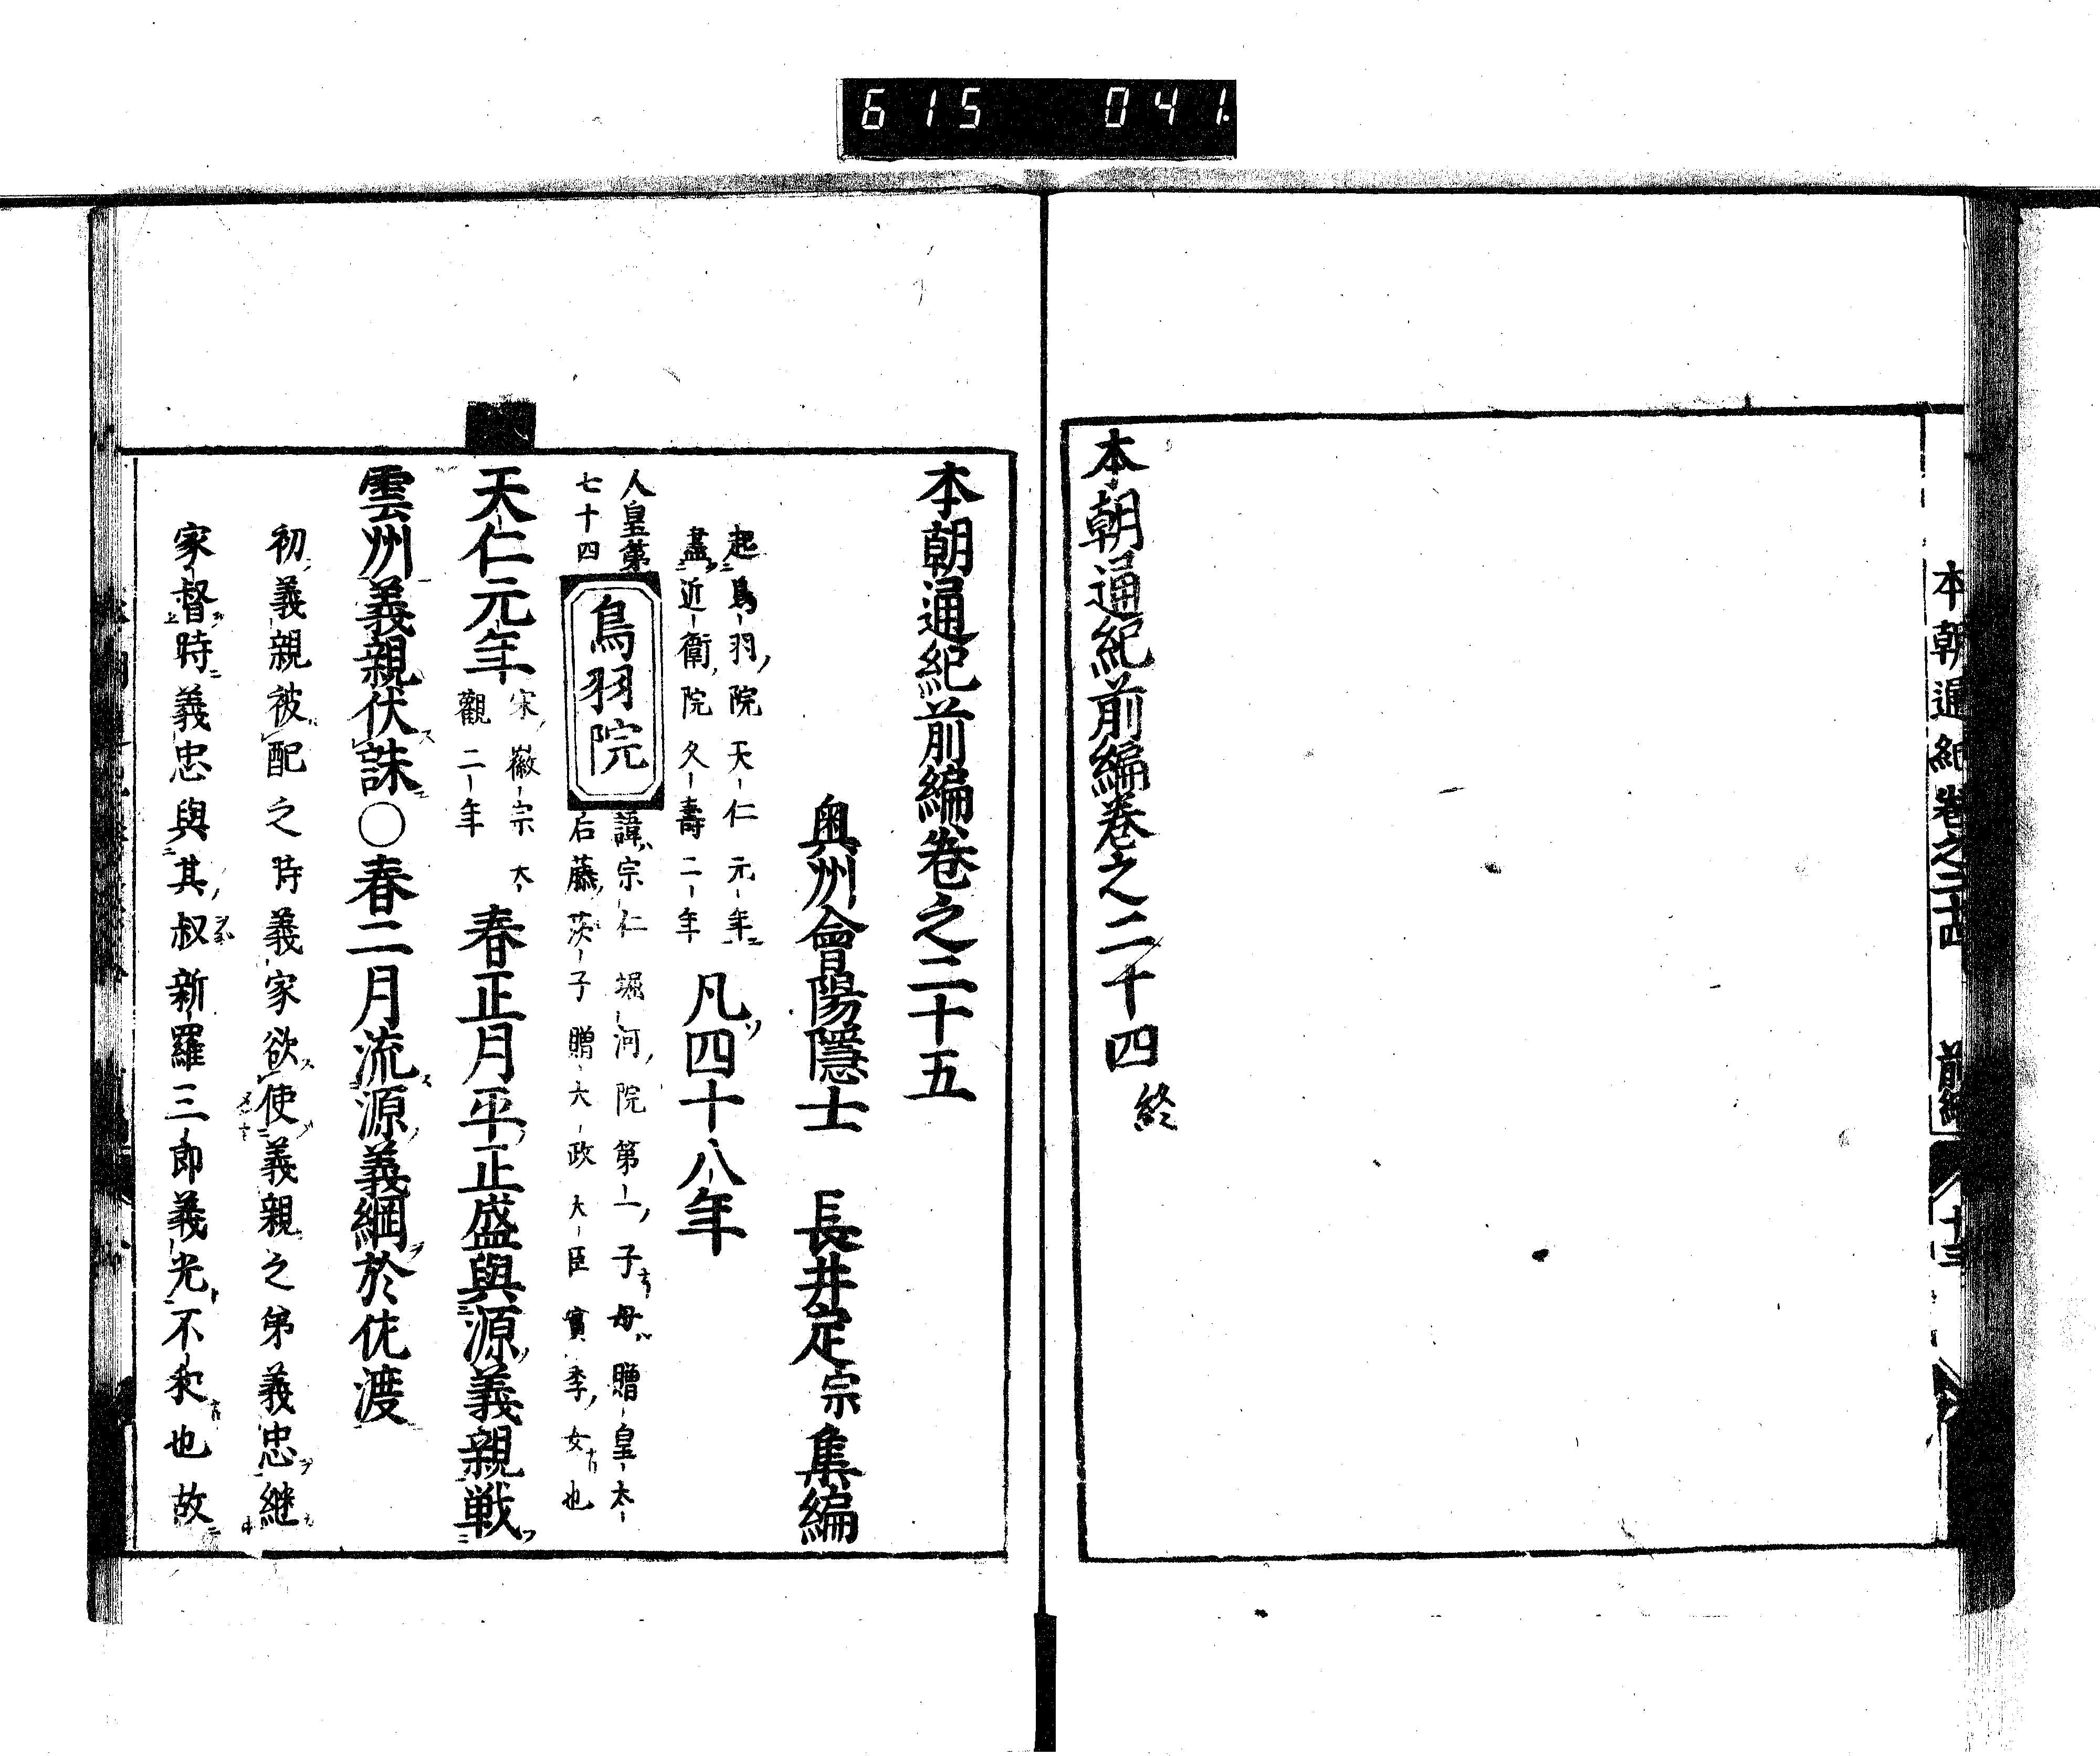 615 041
本朝通紀卷之二十四 前編 十三
本朝通紀前編卷之二十四終
本朝通紀前編卷之二十五
奥州會陽隱士 長井定宗集編
起鳥羽院天仁元年
盡近衛院久壽二年
凡四十八年
人皇第
七十四
鳥羽院
諱宗仁堀河院第一子母贈皇太
后藤茨子贈太政大臣實季女也
天仁元年
宋徽宗大
觀二年
春正月平正盛與源義親戦
雲州義親伏誅○春二月流源義綱於佐渡
初義親被配之時義家欲使義親之弟義忠継
家督時義忠與其叔新羅三郎義光不和也故